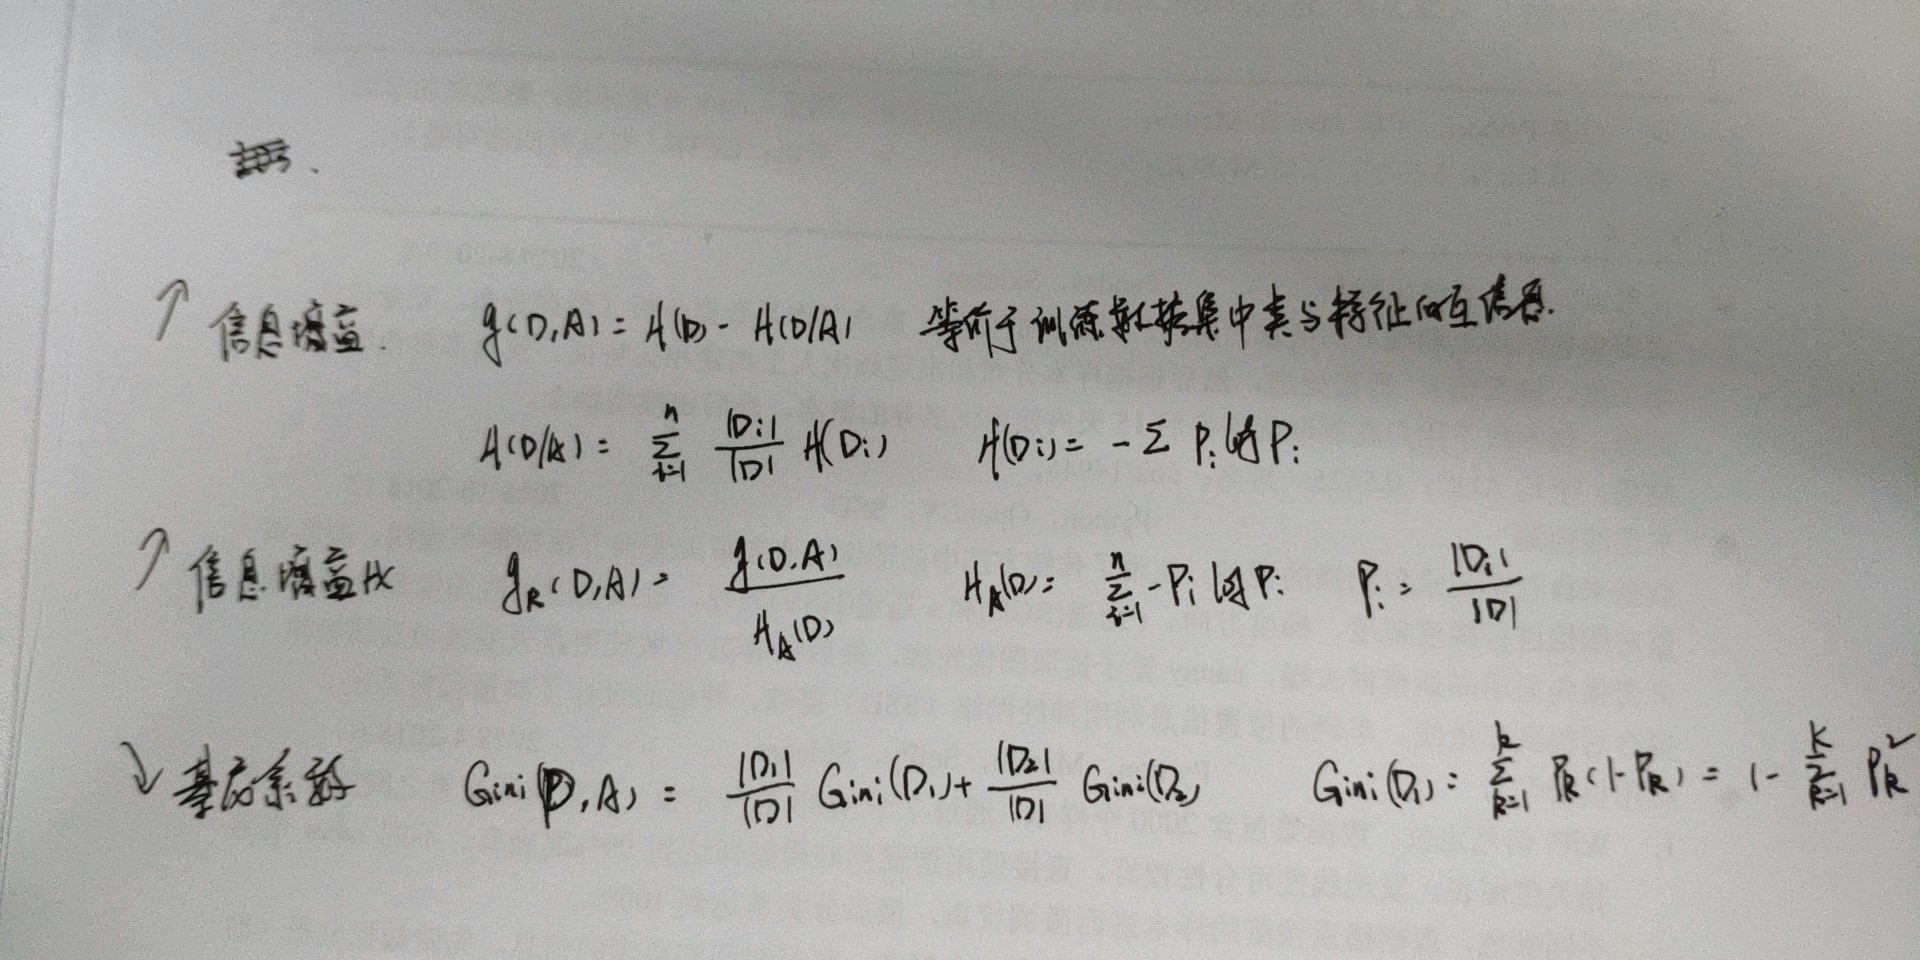 ↑ 信息增益. g(D,A) = H(D) - H(D/A) 等价于训练数据集中类与特征的互信息.
H(D/A) = \sum_{i=1}^{n} \frac{|D_i|}{|D|} H(D_i) H(D_i) = -Σ P_i log P_i
↑ 信息增益比 g_R(D,A) = \frac{g(D,A)}{H_A(D)} H_A(D) = \sum_{i=1}^{n} -P_i log P_i P_i = \frac{|D_i|}{|D|}
↓ 基尼系数 Gini(D,A) = \frac{|D_1|}{|D|} Gini(D_1) + \frac{|D_2|}{|D|} Gini(D_2) Gini(D_1) = \sum_{k=1}^{k} P_k(1-P_k) = 1 - \sum_{k=1}^{K} P_k^2